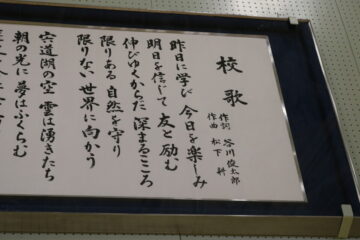 校歌
作詞 谷川俊太郎
作曲 松下 耕
昨日に学び 今日を楽しみ
明日を信じて 友と励む
伸びゆくからだ 深まるこころ
限りある 自然を守り
限りない 世界に向かう
宍道湖の空 雲は湧きたち
朝の光に 夢はふくらむ